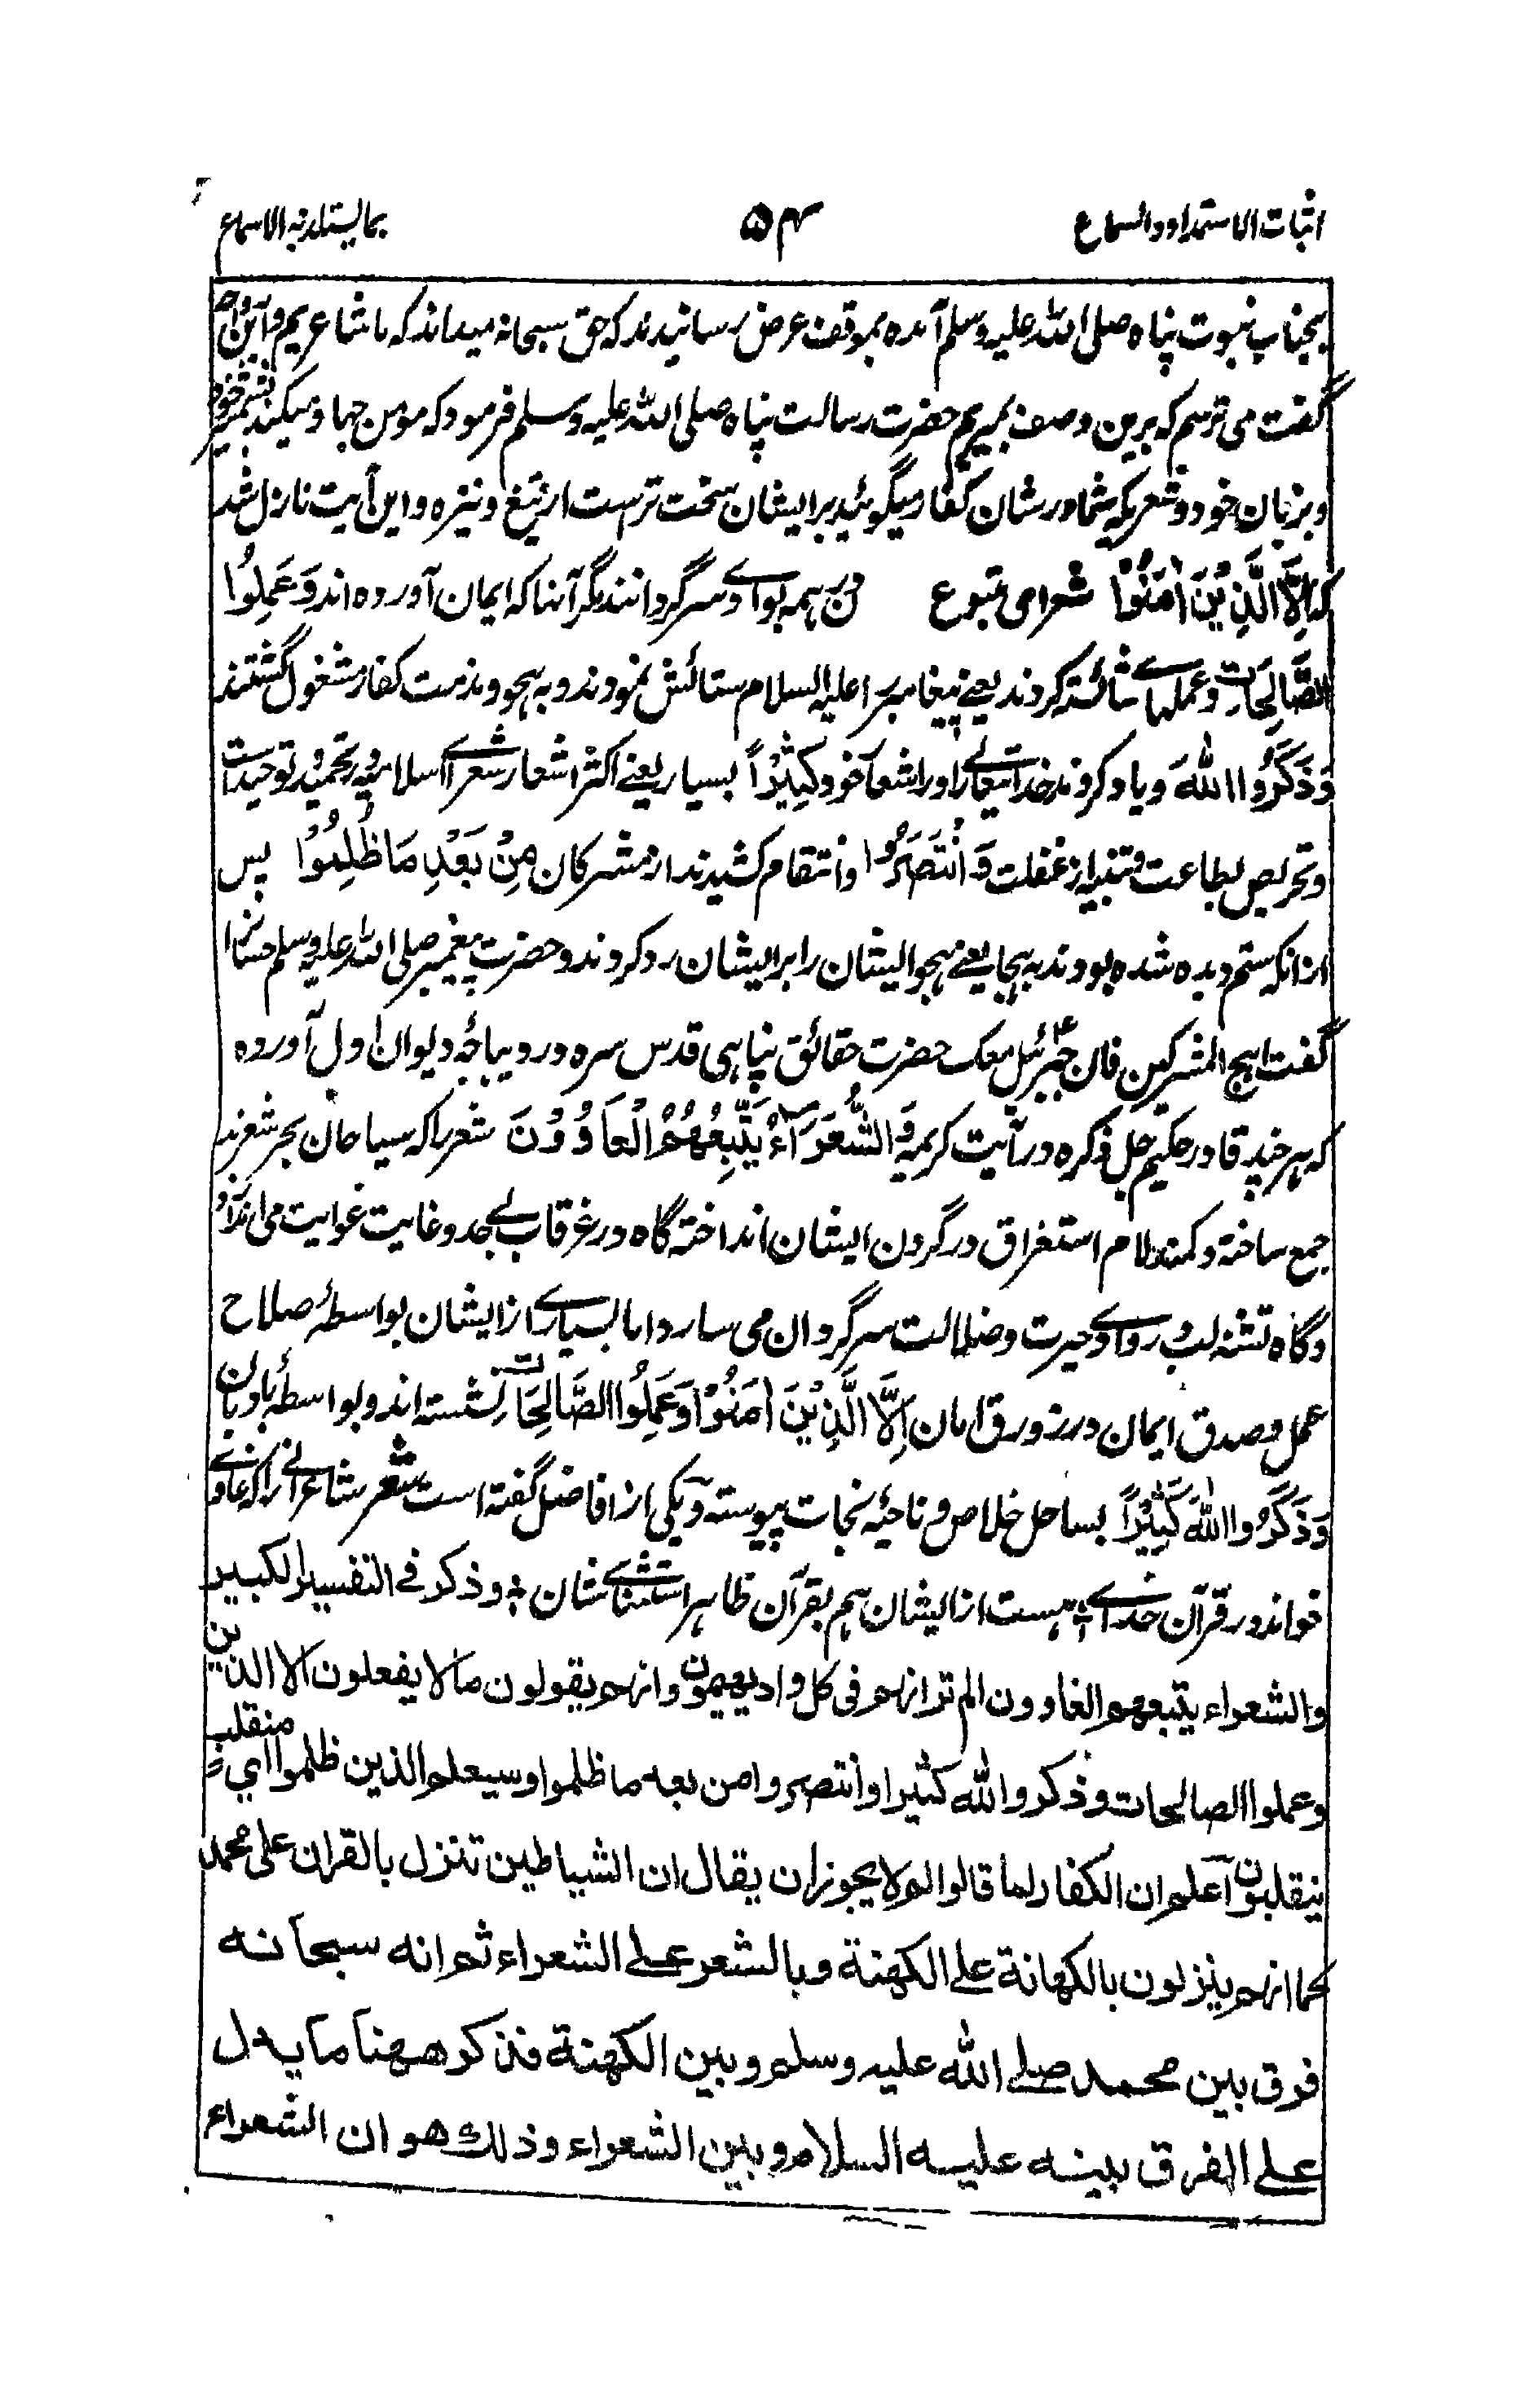 اثبات الاستمداد والسماع ۵۴ بما یستلذ به الاسماع
بجناب نبوت پناه صلی الله علیه وسلم آمده بموقف عرض رسانیدند که حق سبحانه میداند که ما شاعریم و این
گفت می ترسم که برین وصف بمیریم حضرت رسالت پناه صلی الله علیه وسلم فرمود که مومن جهاد میکند بشمشیر خود
و بزبان خود و شعریکه شما در شان کفار میگوئید برایشان سخت ترست از تیغ و نیزه و این آیت نازل شد
که اِلَّا الَّذِیْنَ اٰمَنُوْا شعرای متبوع درین همه بوادی سرگردانند مگر آنانکه ایمان آورده اند وَعَمِلُوا
الصَّالِحَاتِ و عملهای شائسته کردند یعنے پیغامبر را علیه السلام ستائش نمودند و به هجو و مذمت کفار مشغول گشتند
وَذَکَرُوا اللّٰهَ و یاد کردند خدایتعالے را در اشعار خود کَثِیْرًا بسیار یعنے اکثر اشعار شعرای اسلامیه در تحمید و توحیدست
و تحریص بطاعت و تنبیه از غفلت وَانْتَصَرُوْا و انتقام کشیدند از مشرکان مِنْ بَعْدِ مَا ظُلِمُوْا پس
ازانکه ستم دیده شده بودند به هجا یعنے هجو ایشان را برایشان رد کردند و حضرت پیغمبر صلی الله علیه وسلم حسانرا
گفت اهج المشرکین فان جبرئیل معک حضرت حقائق پناهی قدس سره در دیباچۀ دیوان اول آورده
که هر چند قادر حکیم جل ذکره در آیت کریمه وَالشُّعَرَآءُ یَتَّبِعُهُمُ الْغَاوٗوْنَ شعرا که سیاحان بحر شعرند
جمع ساخته و کمند لام استغراق در گردن ایشان انداخته گاه در غرقاب بے حد و غایت غوایت می اندازد
و گاه تشنه لب در وادی حیرت و ضلالت سرگردان می سازد اما بسیارے از ایشان بواسطۀ صلاح
عمل و صدق ایمان در زورق امان اِلَّا الَّذِیْنَ اٰمَنُوْا وَعَمِلُوا الصَّالِحَاتِ نشسته اند و بواسطۀ بادبان
وَذَکَرُوا اللّٰهَ کَثِیْرًا بساحل خلاص و ناحیۀ نجات پیوسته و یکی از افاضل گفته است شعر شاعرانے را که غاوی
خواند در قرآن خدای ؛ هست ازایشان هم بقرآن ظاهر استثنای شان ؛ وذکر فے التفسیر الکبیر
والشعراء یتبعهم الغاوون الم تر انهم فی کل واد یهیمون وانهم یقولون ما لا یفعلون الا الذین
وعملوا الصالحات وذکروا الله کثیرا وانتصروا من بعد ما ظلموا وسیعلم الذین ظلموا ای منقلب
ینقلبون اعلم ان الکفار لما قالوا لم لا یجوز ان یقال ان الشیاطین تنزل بالقران علی محمد
کما انهم ینزلون بالکهانة علی الکهنة وبالشعر علے الشعراء ثم انه سبحانه
فرق بین محمد صلے الله علیه وسلم وبین الکهنة فذکر ههنا ما یدل
علے الفرق بینه علیه السلام وبین الشعراء وذلک هو ان الشعراء